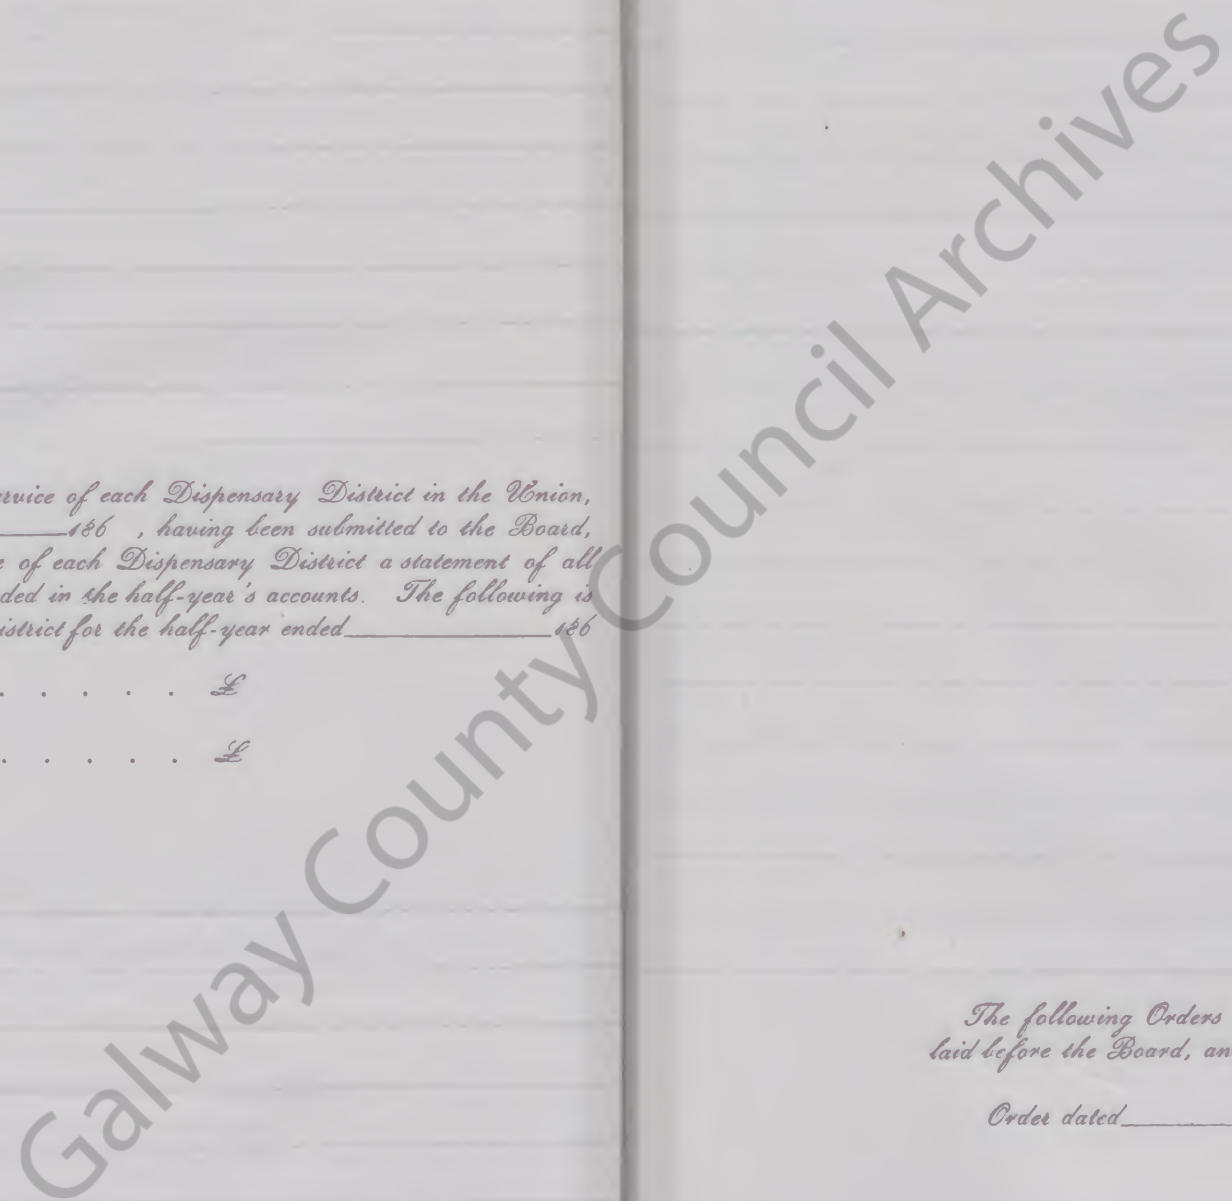 rvice of each Dispensary District in the Union,
186 , having been submitted to the Board,
e of each Dispensary District a statement of all
ded in the half-year's accounts. The following is
istrict for the half-year ended 186
. . . . . £
. . . . . £
The following Orders
laid before the Board, an
Order dated
Galway County Council Archives